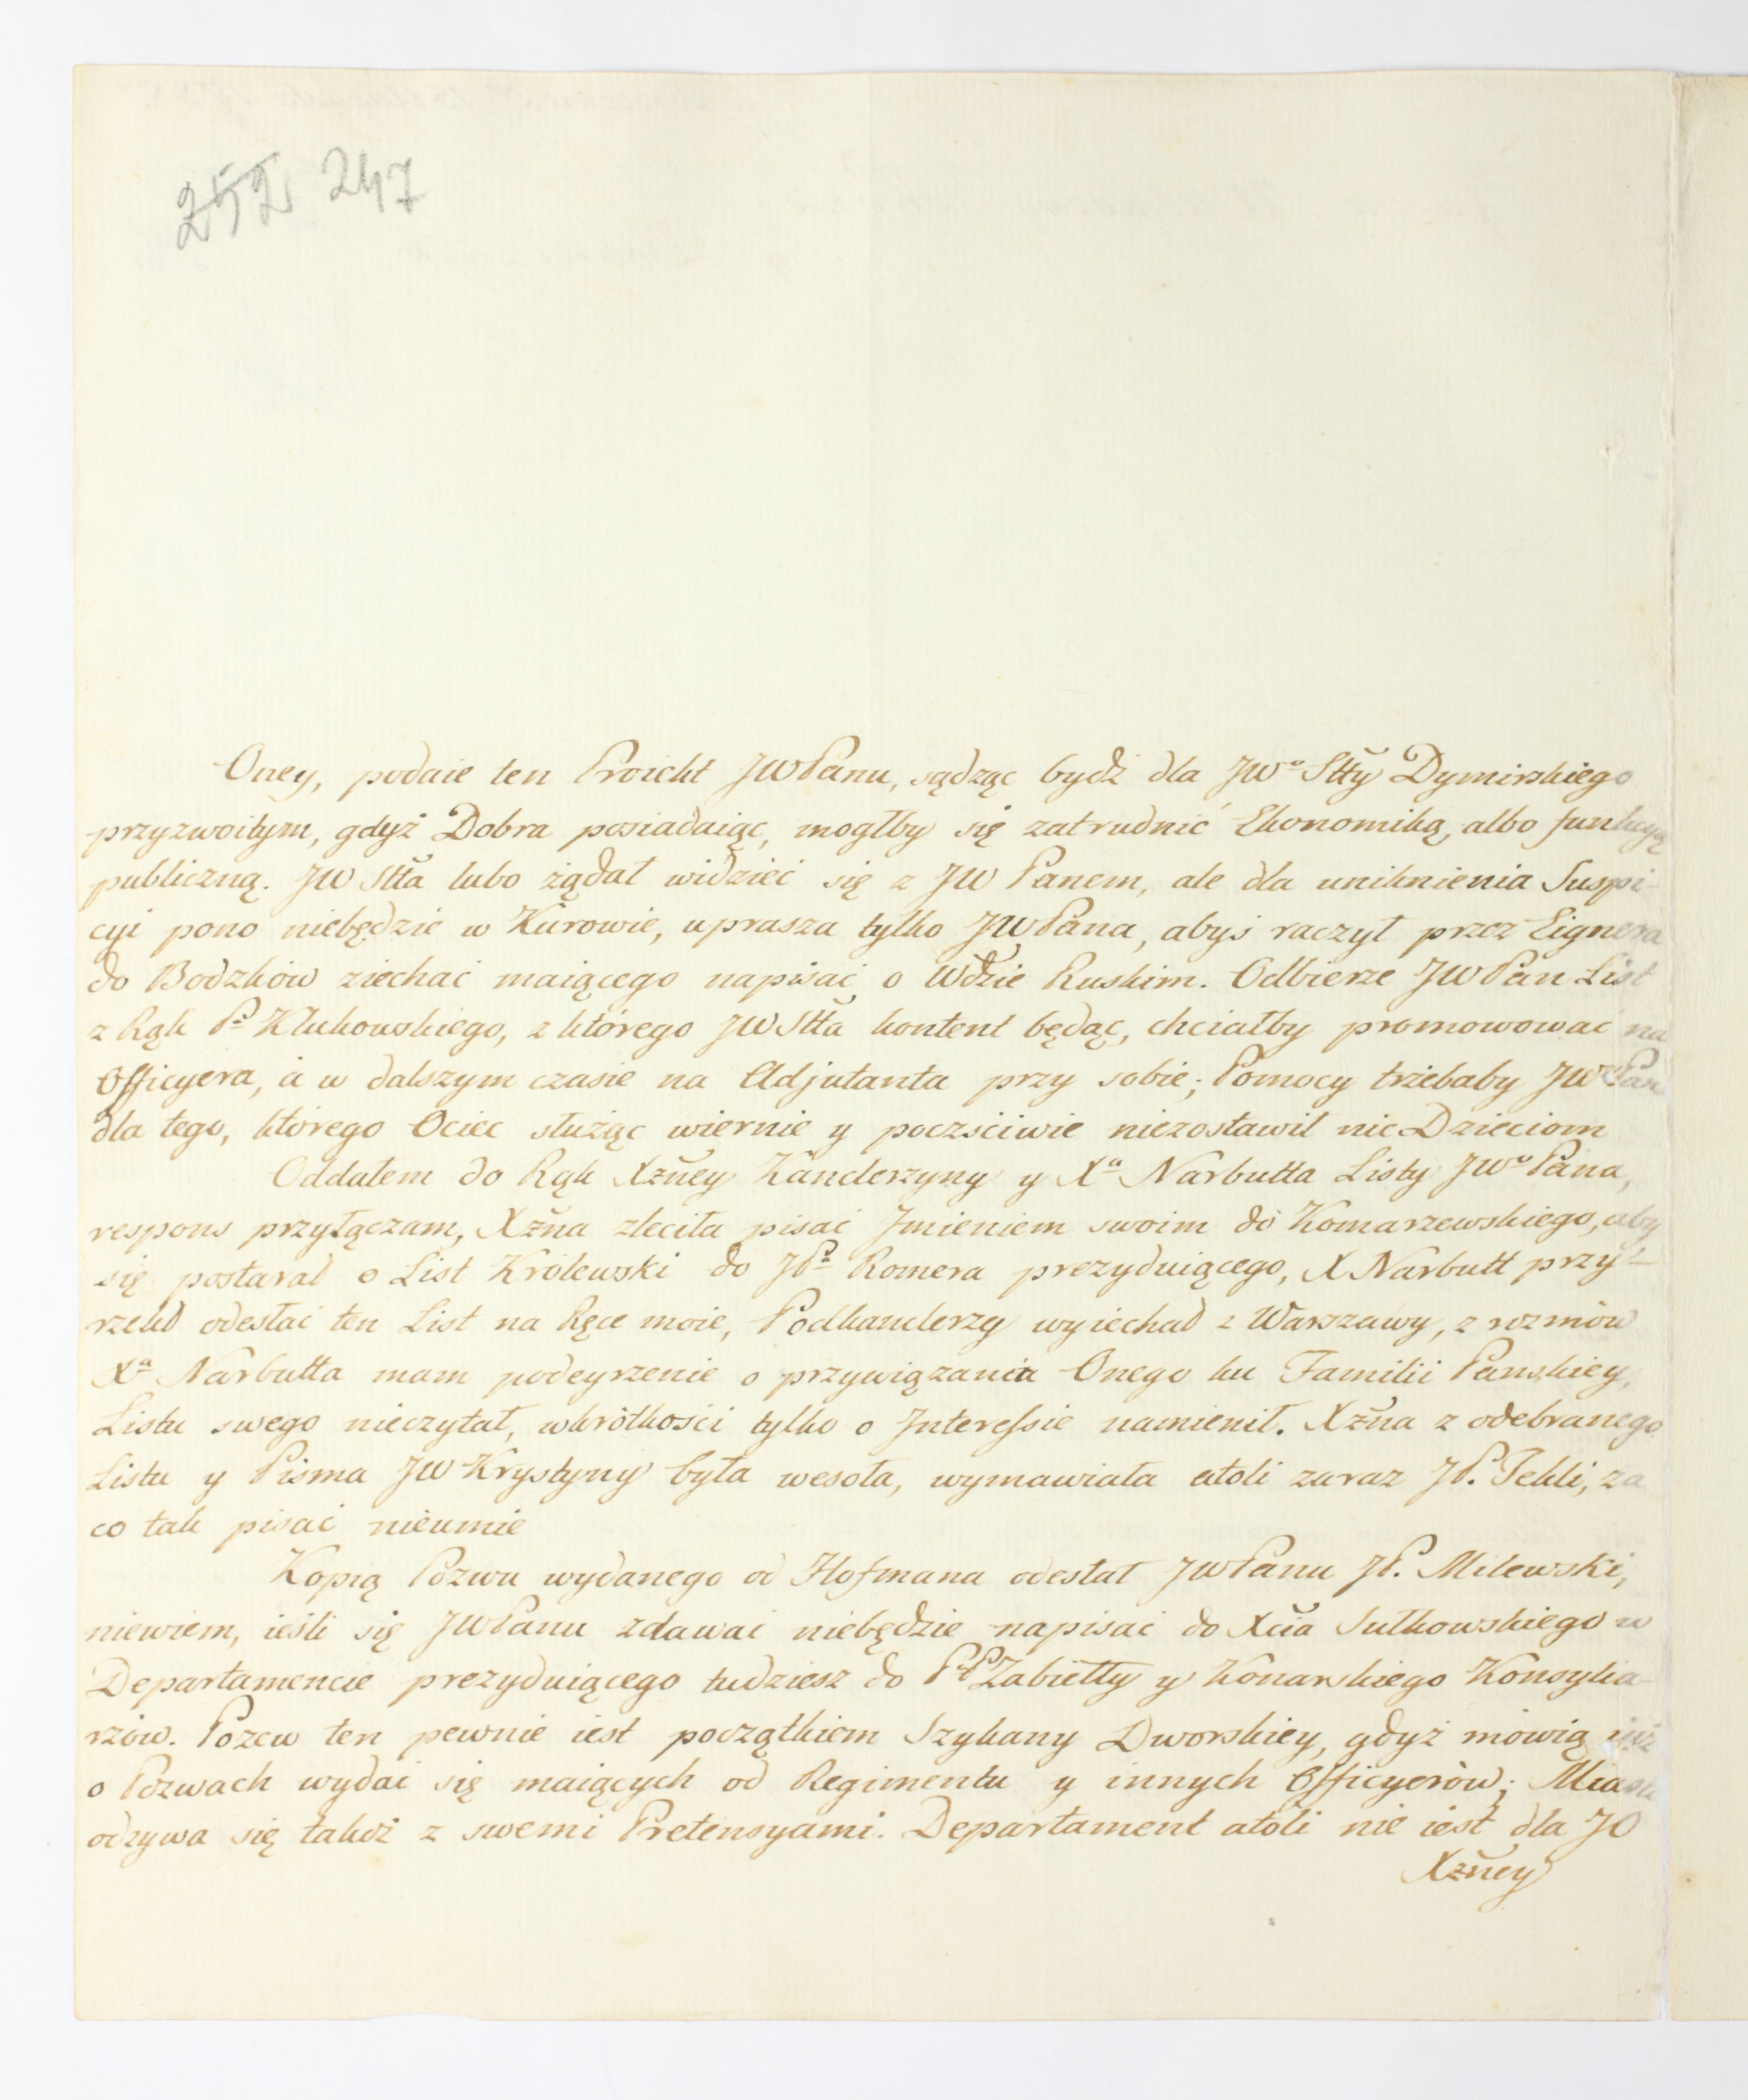 252 247
Oney, podaie ten Proickt JWPanu, sądząc bydź dla JWº Stty Dymirskiego
przyzwoitym, gdyż Dobra posiadaiąc, mogłby się zatrudnić Ekonomiką, albo funkcyą
publiczną. JW Stta lubo żądał widzieć się z JW Panem, ale dla uniknienia Suspi-
cyi pono niebędzie w Kurowie, uprasza tylko JWPana, abyś raczył przez Eignera
do Bodzków ziechać maiącego napisać o Wdzie Ruskim. Odbierze JWPan List
z Rąk Pª Klukowskiego, z którego JWStta kontent będąc, chciałby promowować na
Officyera, a w dalszym czasie na Adjutanta przy sobie; Pomocy trzebaby JWº Pan
dla tego, którego Ociec służąc wiernie y poczściwie niezostawił nic Dzieciom
Oddałem do Rąk Xżney Kanclerzyny y Xª Narbutta Listy JWº Pana,
respons przyłączam, Xżna zleciła pisać Jmieniem swoim do Komarzewskiego, aby
się postarał o List Królewski do JPª Romera prezyduiącego, X Narbutt przy-
rzekł odesłać ten List na Ręce moie, Podkanclerzy wyiechał z Warszawy, z rozmów
Xª Narbutta mam podeyrzenie o przywiązaniu Onego ku Familii Panskiey,
Listu swego nieczytał, wkrótkości tylko o Jnteressie namienił. Xżna z odebranego
Listu y Pisma JW Krystyny była wesoła, wymawiała atoli zaraz JP. Tekli, za
co tak pisać nieumie
Kopią Pozwu wydanego od Hofmana odesłał JWPanu JP. Milewski,
niewiem, ieśli się JWPanu zdawać niebędzie napisać do Xcia Sułkowskiego w
Departamencie prezyduiącego tudziesz do PP Zabiełły y Konarskiego Konsylia-
rzów. Pozew ten pewnie iest początkiem Szykany Dworskiey, gdyż mówią iuż
o Pozwach wydać się maiących od Regimentu y innych Officyerów; Miasto
odzywa się takoż z swemi Pretensyami. Departament atoli nie iest dla JO
Xżney